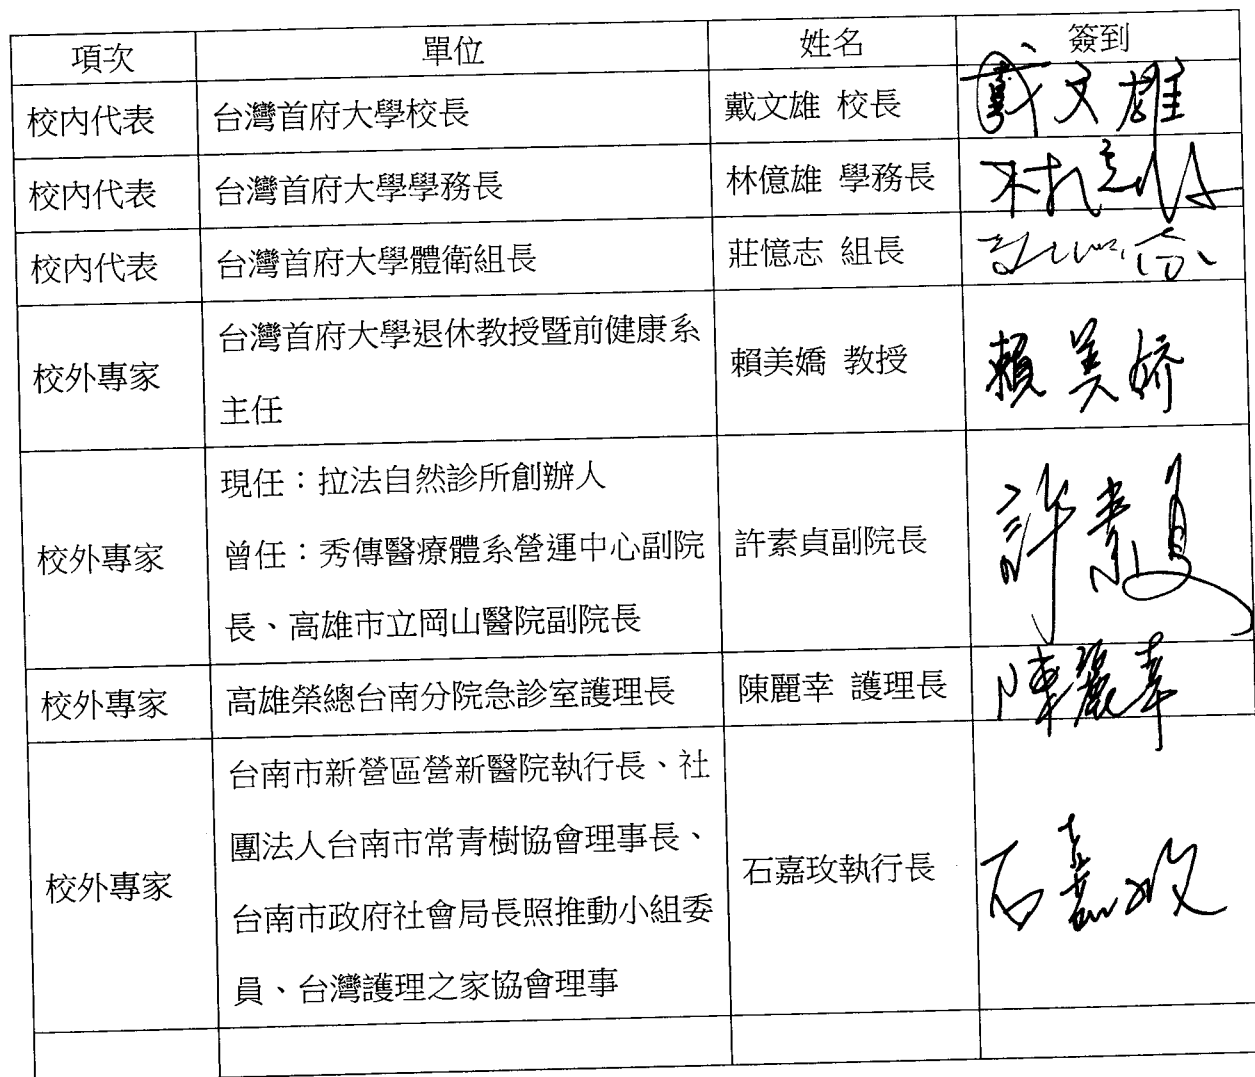 項次 單位 姓名 簽到
校內代表 台灣首府大學校長 戴文雄 校長 戴文雄
校內代表 台灣首府大學學務長 林億雄 學務長 林億雄
校內代表 台灣首府大學體衛組長 莊憶志 組長
校外專家 台灣首府大學退休教授暨前健康系
主任 賴美嬌 教授 賴美娇
校外專家 現任：拉法自然診所創辦人
曾任：秀傳醫療體系營運中心副院
長、高雄市立岡山醫院副院長 許素貞副院長 許素貞
校外專家 高雄榮總台南分院急診室護理長 陳麗幸 護理長 陳麗幸
校外專家 台南市新營區營新醫院執行長、社
團法人台南市常青樹協會理事長、
台南市政府社會局長照推動小組委
員、台灣護理之家協會理事 石嘉玫執行長 石嘉玫